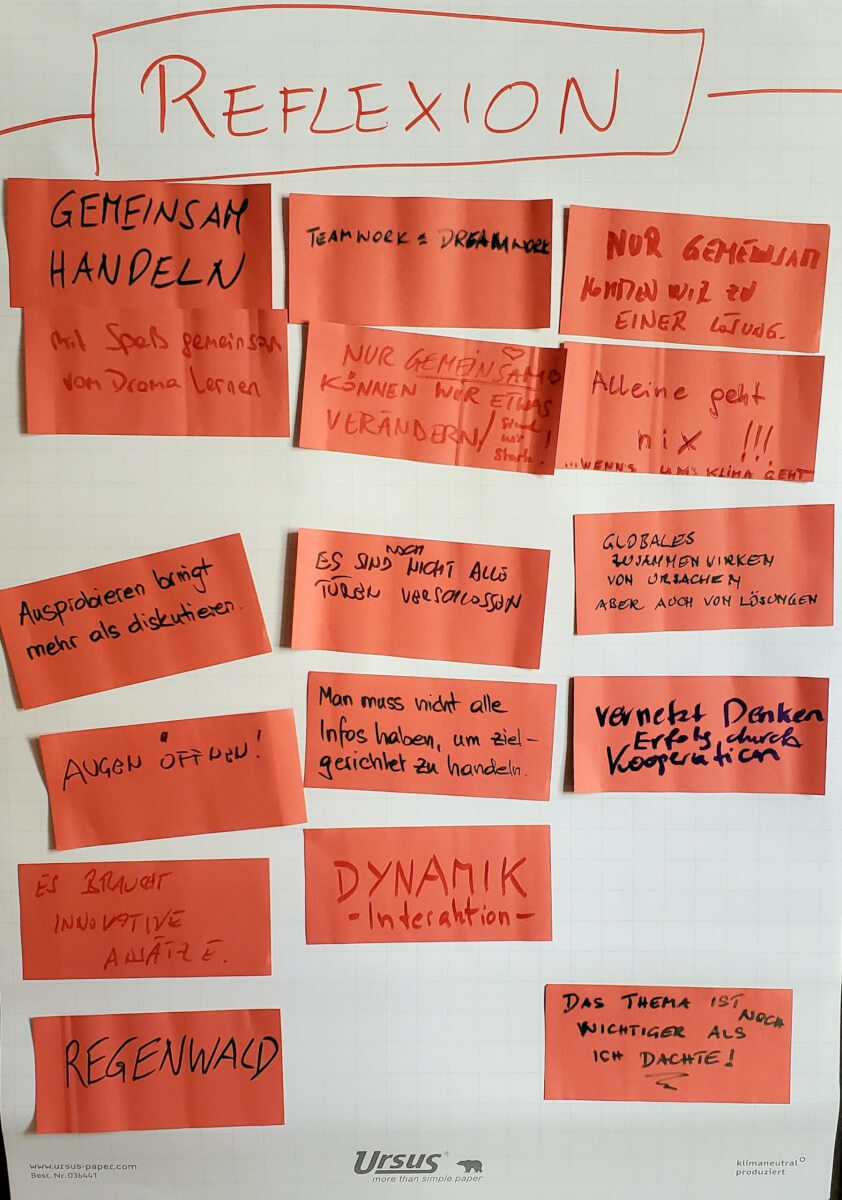 REFLEXION
GEMEINSAM
HANDELN
TEAMWORK = DREAMWORK
NUR GEMEINSAM
KOMMEN WIR ZU
EINER LÖSUNG.
Mit Spaß gemeinsam
vom Drama Lernen
NUR GEMEINSAM
KÖNNEN WIR ETWAS
VERÄNDERN/
sind
wir
stark!
Alleine geht
nix !!!
...WENN'S UMS KLIMA GEHT
Ausprobieren bringt
mehr als diskutieren.
ES SIND NOCH NICHT ALLE
TÜREN VERSCHLOSSEN
GLOBALES
ZUSAMMENWIRKEN
VON URSACHEN
ABER AUCH VON LÖSUNGEN
AUGEN ÖFFNEN!
Man muss nicht alle
Infos haben, um ziel-
gerichtet zu handeln.
vernetzt Denken
Erfolg durch
Kooperation
ES BRAUCHT
INNOVATIVE
ANSÄTZE.
DYNAMIK
-Interaktion-
REGENWALD
DAS THEMA IST NOCH
WICHTIGER ALS
ICH DACHTE!
www.ursus-paper.com
Best. Nr. 036441
Ursus®
more than simple paper
klimaneutral
produziert